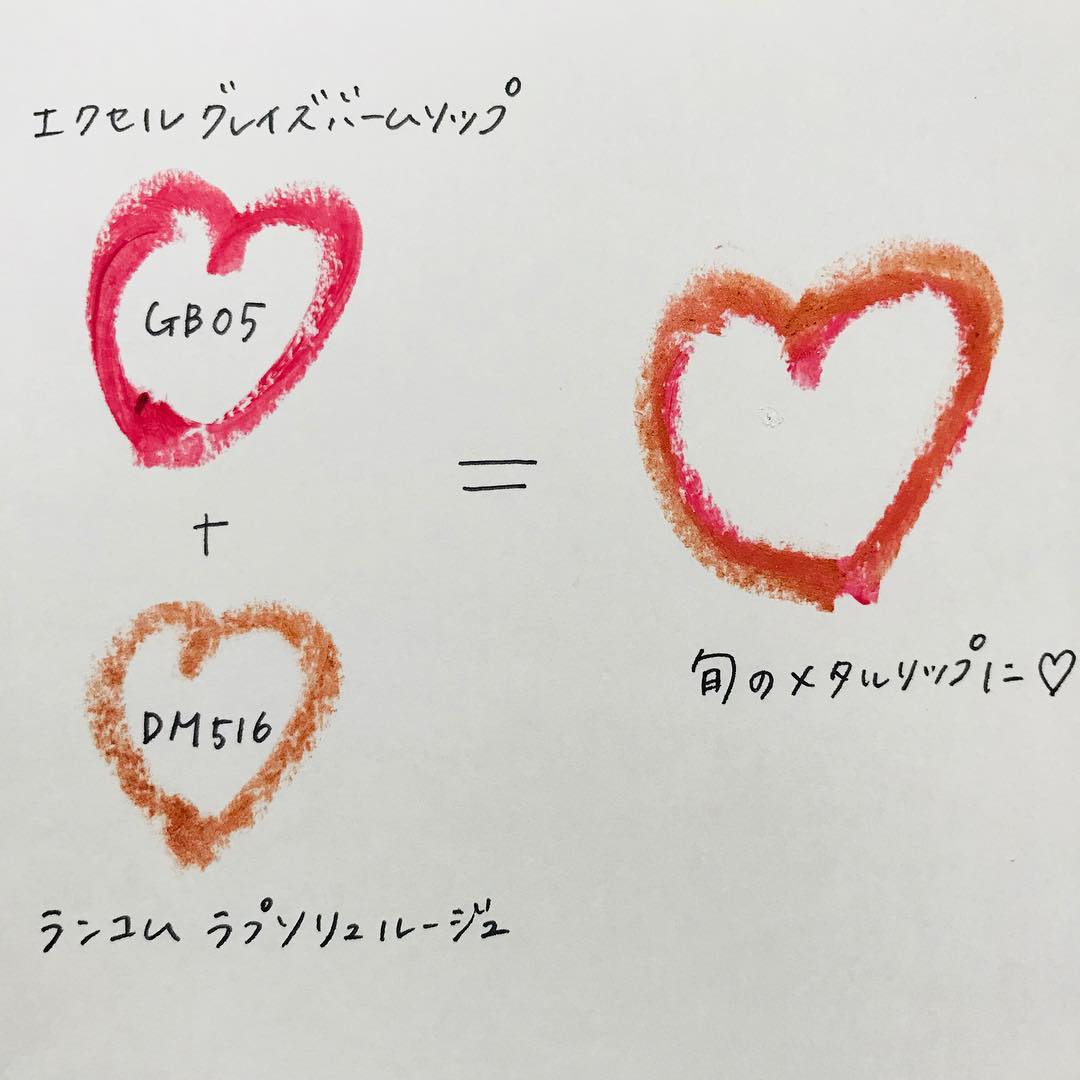 エクセル グレイズバームリップ
GB05
+
DM516
ランコム ラプソリュルージュ
=
旬のメタルリップに♡